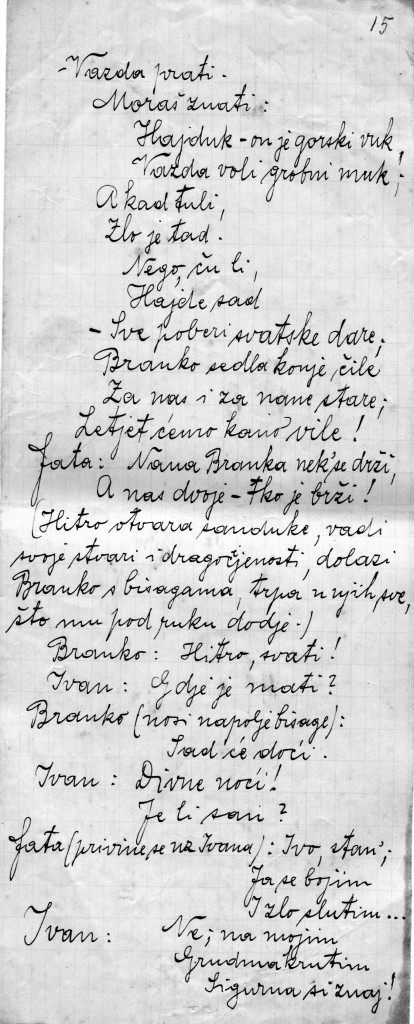 15
-Vazda prati.
Moraš znati:
Hajduk - on je gorski vuk,
Vazda voli grobni muk!;
A kad tuli,
Zlo je tad.
Nego, ču li,
Hajde sad
- Sve poberi svatske dare;
Branko sedla konje čile
Za nas i za nane stare;
Letjet ćemo kano vile!
Fata: Nana Branka nek' se drži,
A nas dvoje - tko je brži!
(Hitro otvara sanduke, vadi
svoje stvari i dragočjenosti, dolazi
Branko s bisagama, trpa u njih sve,
što mu pod ruku dodje.)
Branko: Hitro, svati!
Ivan: Gdje je mati?
Branko (nosi napolje bisage):
Sad će doći.
Ivan: Divne noći!
Je li san?
Fata (privine se uz Ivana): Ivo, stan';
Ja se bojim
I zlo slutim...
Ivan: Ne; na mojim
Grudma krutim
Sigurna si znaj!